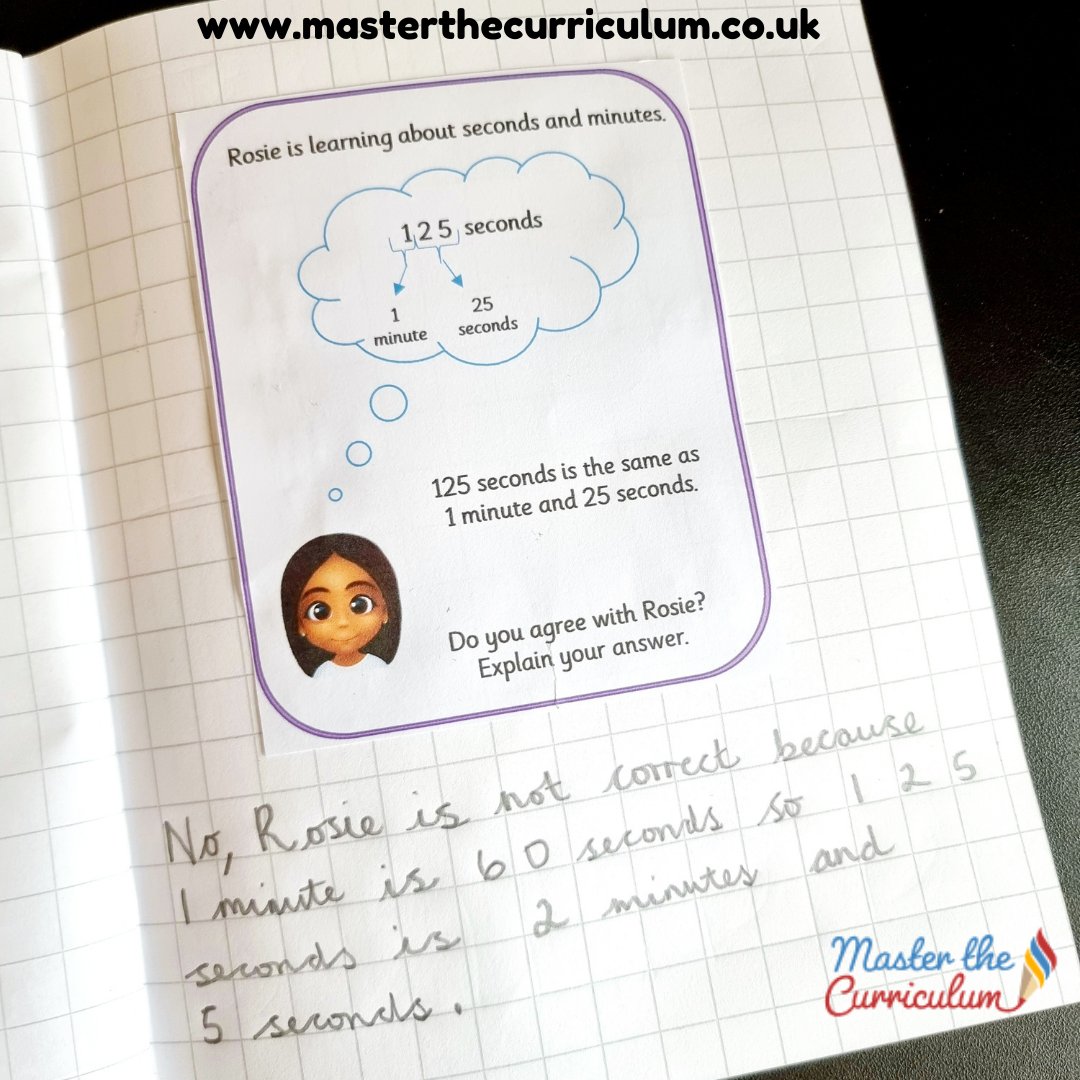 www.masterthecurriculum.co.uk
Rosie is learning about seconds and minutes.
125 seconds
1
minute
25
seconds
125 seconds is the same as
1 minute and 25 seconds.
Do you agree with Rosie?
Explain your answer.
No, Rosie is not correct because
1 minute is 60 seconds so 125
seconds is 2 minutes and
5 seconds.
Master the
Curriculum